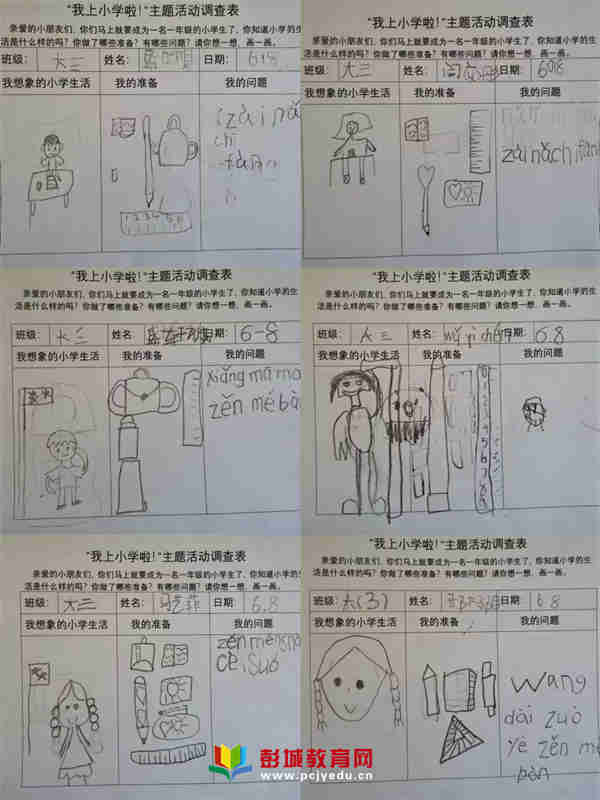 “我上小学啦!”主题活动调查表
亲爱的小朋友们,你们马上就要成为一名一年级的小学生了,你知道小学的生
活是什么样的吗?你做了哪些准备?有哪些问题?请你想一想,画一画。
班级: 大三 姓名: 日期: 618
我想象的小学生活 我的准备 我的问题
zài nǎ
chī
fàn
“我上小学啦!”主题活动调查表
亲爱的小朋友们,你们马上就要成为一名一年级的小学生了,你知道小学的生
活是什么样的吗?你做了哪些准备?有哪些问题?请你想一想,画一画。
班级: 大三 姓名: 日期:
我想象的小学生活 我的准备 我的问题
zài nǎ chī fàn
“我上小学啦!”主题活动调查表
亲爱的小朋友们,你们马上就要成为一名一年级的小学生了,你知道小学的生
活是什么样的吗?你做了哪些准备?有哪些问题?请你想一想,画一画。
班级: 大三 姓名: 日期: 6-8
我想象的小学生活 我的准备 我的问题
xiǎng mā ma
zěn me bàn
“我上小学啦!”主题活动调查表
亲爱的小朋友们,你们马上就要成为一名一年级的小学生了,你知道小学的生
活是什么样的吗?你做了哪些准备?有哪些问题?请你想一想,画一画。
班级: 大三 姓名: 日期: 6.8
我想象的小学生活 我的准备 我的问题
“我上小学啦!”主题活动调查表
亲爱的小朋友们,你们马上就要成为一名一年级的小学生了,你知道小学的生
活是什么样的吗?你做了哪些准备?有哪些问题?请你想一想,画一画。
班级: 大三 姓名: 日期: 6.8
我想象的小学生活 我的准备 我的问题
cè suǒ
“我上小学啦!”主题活动调查表
亲爱的小朋友们,你们马上就要成为一名一年级的小学生了,你知道小学的生
活是什么样的吗?你做了哪些准备?有哪些问题?请你想一想,画一画。
班级: 大(3) 姓名: 日期: 6.8
我想象的小学生活 我的准备 我的问题
wang
dài zuò
yè zěn me
bàn
彭城教育网
www.pcjyedu.cn